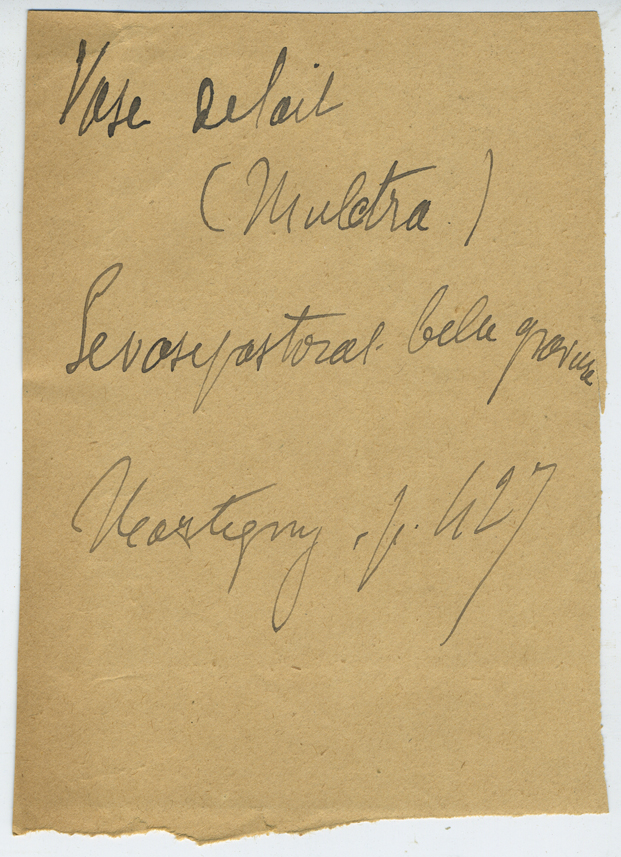 Vase de lait
(Mulctra.)
Le vase pastoral. belle gravure
Martigny. p. 427